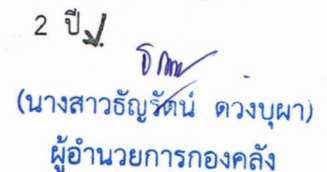 2 ปี
(นางสาวธัญรัตน์ ดวงบุผา)
ผู้อำนวยการกองคลัง